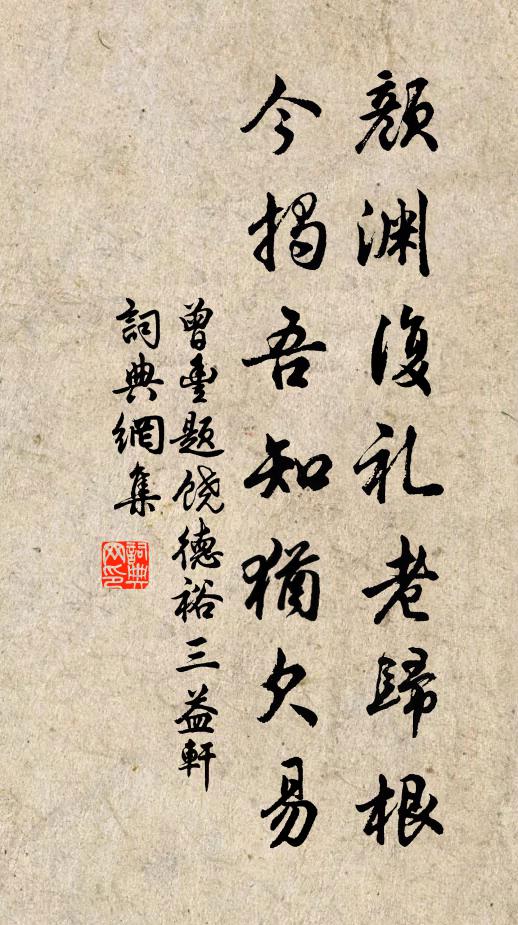 颜渊復礼老歸根
今揭吾知猶欠易
曾豊题饶德裕三益軒
詞典網集
詞典網印